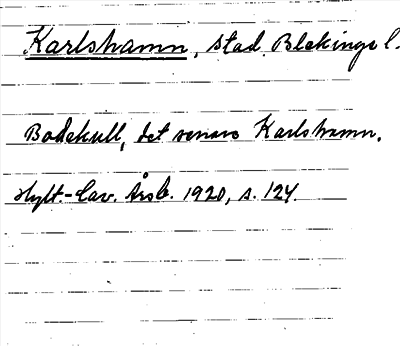 Karlshamn, stad. Blekinge l.
Bodekull, det senare Karlshamn.
Hylt.-Cav. Årsb. 1920, s. 124.